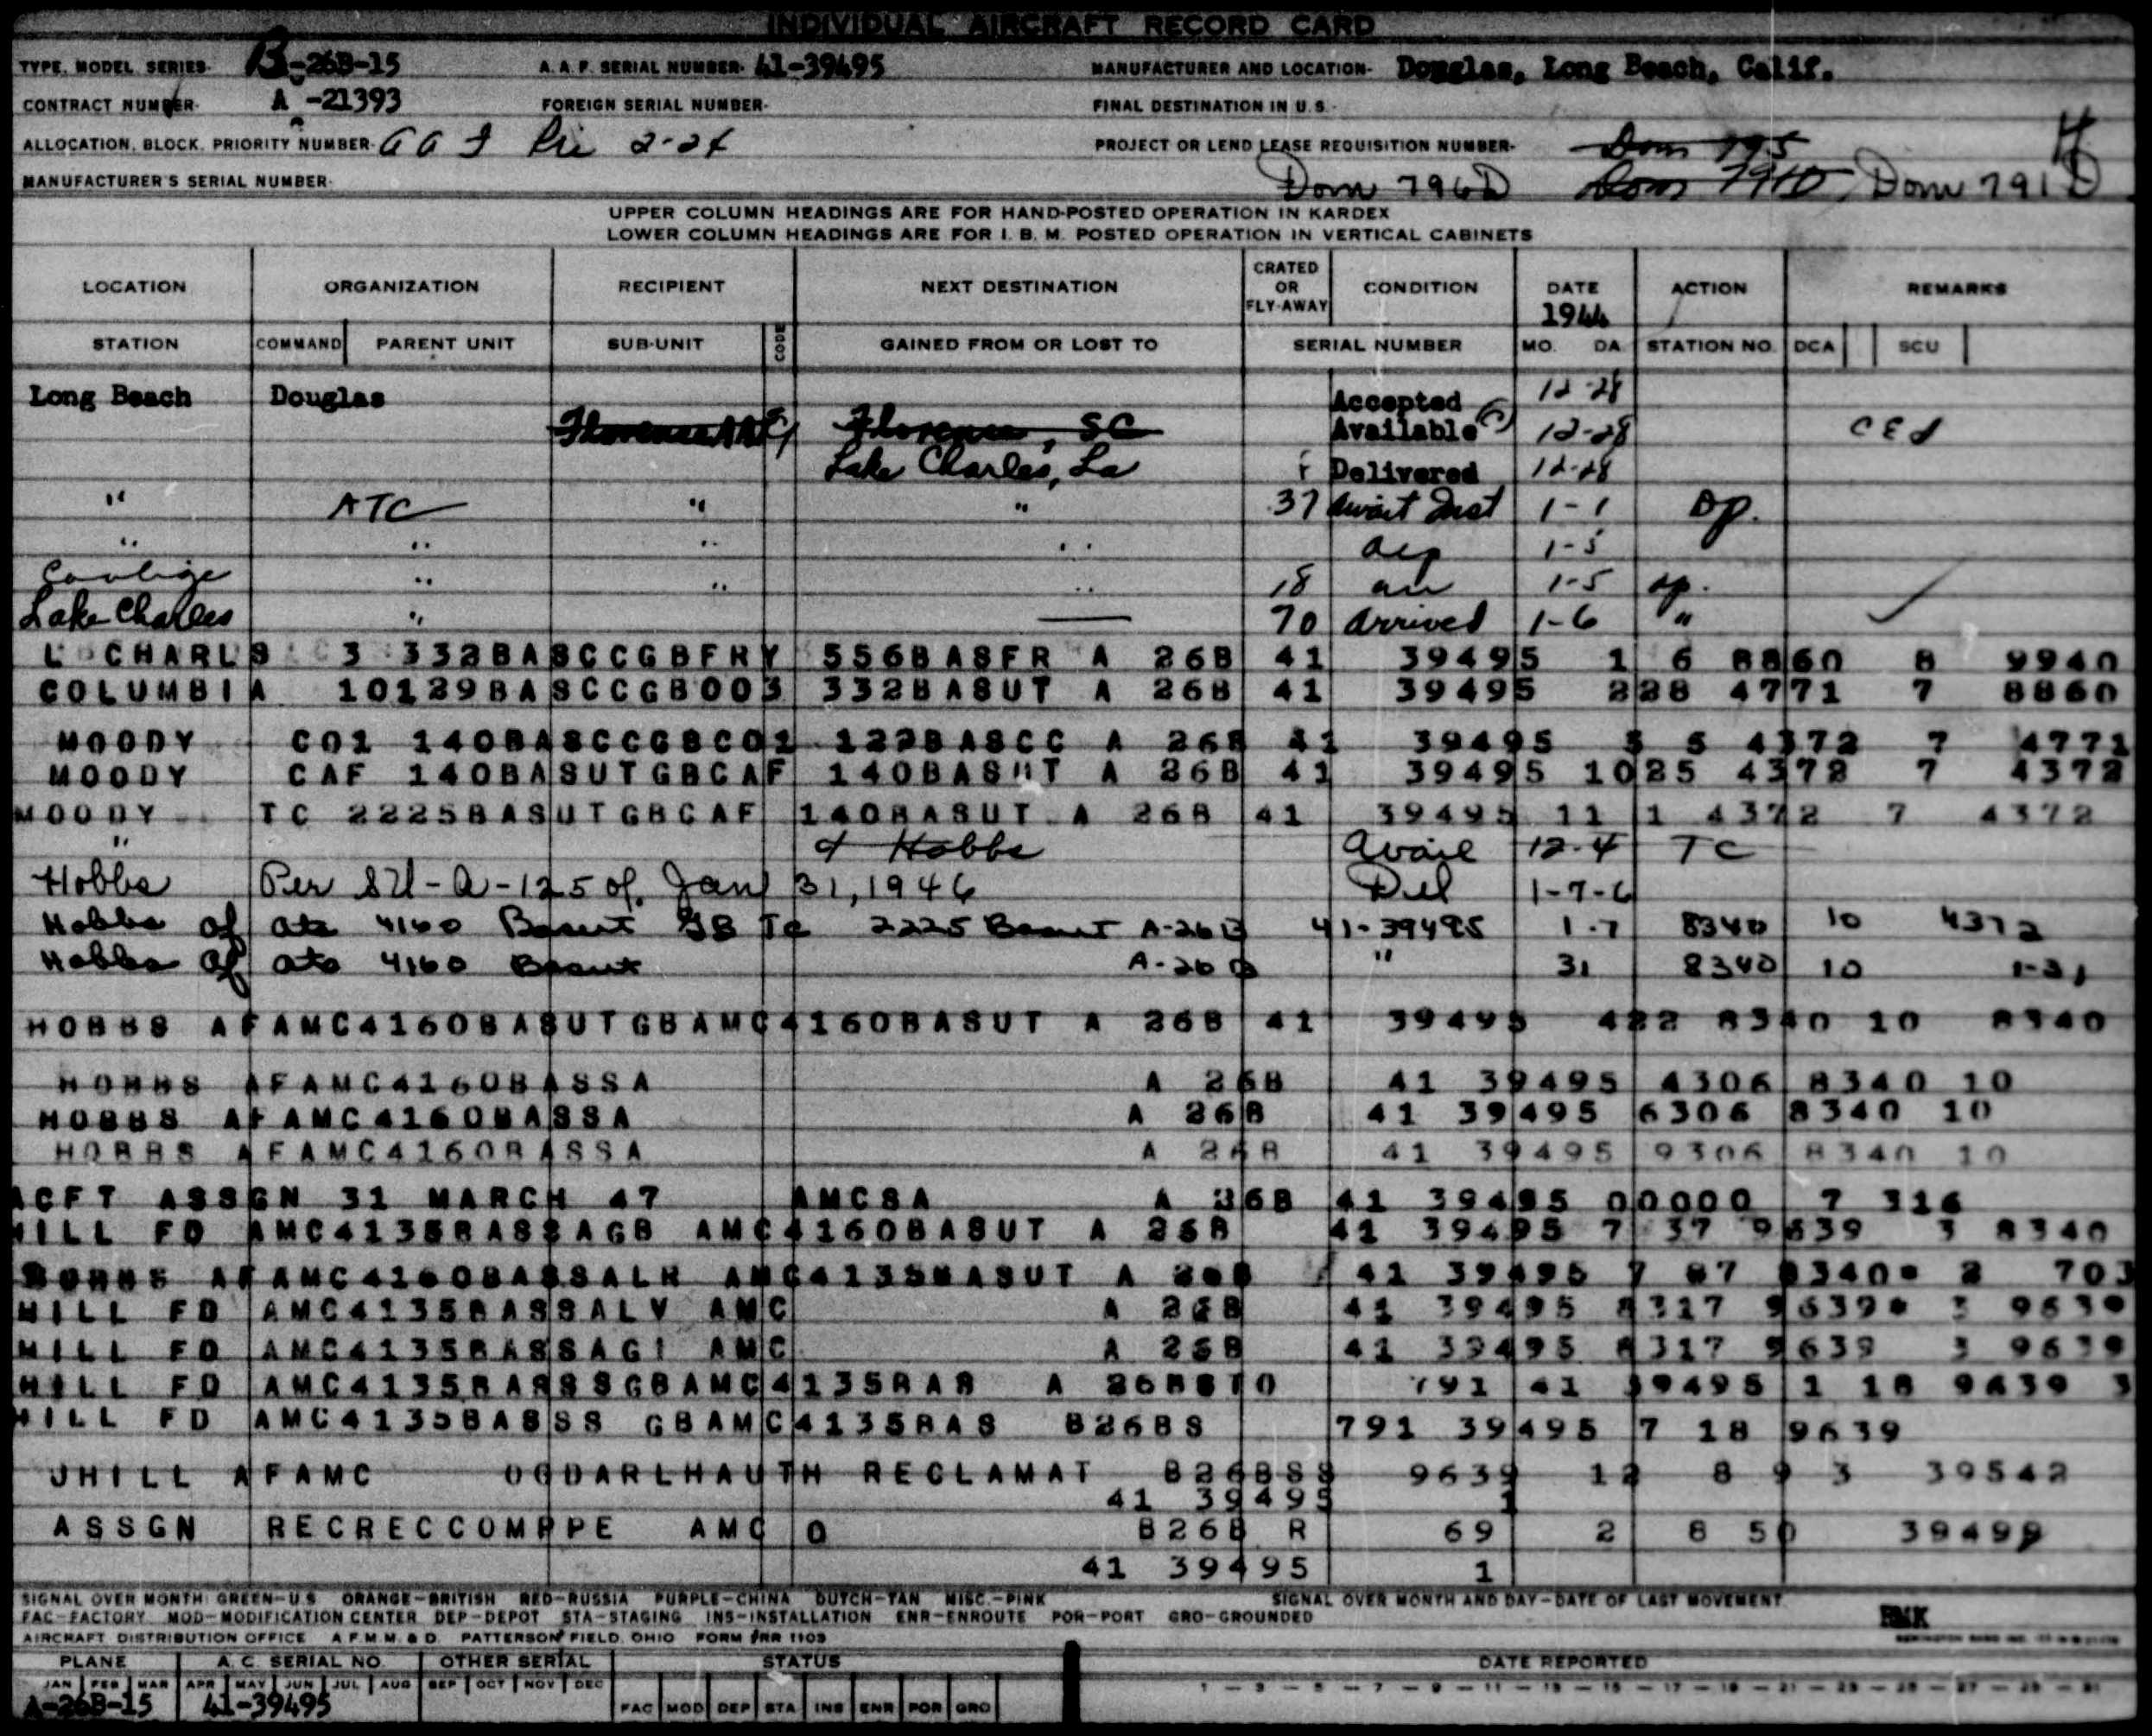 INDIVIDUAL AIRCRAFT RECORD CARD
TYPE, MODEL, SERIES- B-26B-15 A.A.F. SERIAL NUMBER- 41-39495 MANUFACTURER AND LOCATION- Douglas, Long Beach, Calif.
CONTRACT NUMBER- A -21393 FOREIGN SERIAL NUMBER- FINAL DESTINATION IN U.S.-
ALLOCATION, BLOCK, PRIORITY NUMBER- 2-24 PROJECT OR LEND LEASE REQUISITION NUMBER- Dom 795 H
MANUFACTURER'S SERIAL NUMBER- Dom 796D Dom 791D Dom 791D
UPPER COLUMN HEADINGS ARE FOR HAND-POSTED OPERATION IN KARDEX
LOWER COLUMN HEADINGS ARE FOR I. B. M. POSTED OPERATION IN VERTICAL CABINETS
LOCATION ORGANIZATION RECIPIENT NEXT DESTINATION CRATED OR FLY-AWAY CONDITION DATE 1944 ACTION REMARKS
STATION COMMAND PARENT UNIT SUB-UNIT GAINED FROM OR LOST TO SERIAL NUMBER MO. DA. STATION NO. DCA SCU
Long Beach Douglas Accepted 12-28
Florence Florence, SC Available 12-28
Lake Charles, La F Delivered 12-28
" ATC " " 37 Await Inst 1-1 Op.
" " " " 1-5
" " " 18 1-5 op.
Lake Charles " — 70 Arrived 1-6 "
L CHARLS 3 332BASCCGBFRY 556BASFR A 26B 41 39495 1 6 8860 8 9940
COLUMBIA 10129BASCCGB003 332BASUT A 26B 41 39495 228 4771 7 8860
MOODY C01 140BASCCGBC01 129BASCC A 26B 41 39495 3 5 4372 7 4771
MOODY CAF 140BASUTGBCAF 140BASUT A 26B 41 39495 1025 4372 7 4372
MOODY TC 2225BASUTGBCAF 140BASUT A 26B 41 39495 11 1 4372 7 4372
" Hobbs Avail 12-4 TC
Hobbs Per SU-A-125 of Jan 31, 1946 Del 1-7-6
Hobbs af ats 4160 Basut GB Tc 2225 Basut A-26B 41-39495 1-7 8340 10 4372
Hobbs af ats 4160 Basut A-26B " 31 8340 10 1-31
HOBBS AFAMC4160BASUTGBAMC4160BASUT A 26B 41 39495 422 8340 10 8340
HOBBS AFAMC4160BASSA A 26B 41 39495 4306 8340 10
HOBBS AFAMC4160BASSA A 26B 41 39495 6306 8340 10
HOBBS AFAMC4160BASSA A 26B 41 39495 9306 8340 10
ACFT ASSGN 31 MARCH 47 AMCSA A 26B 41 39495 00000 7 316
HILL FD AMC4135BASSAGB AMC4160BASUT A 26B 41 39495 7 37 9639 3 8340
HOBBS AFAMC4160BASSALH AMC4135BASUT A 26B 41 39495 7 87 8340 2 703
HILL FD AMC4135BASSALV AMC A 26B 41 39495 8317 9639 3 9639
HILL FD AMC4135BASSAGI AMC A 26B 41 39495 8317 9639 3 9639
HILL FD AMC4135BASSSGBAMC4135BAS A 26BST0 791 41 39495 1 18 9639 3
HILL FD AMC4135BASSS GBAMC4135BAS B26BS 791 39495 7 18 9639
JHILL AFAMC OGDARLHAUTH RECLAMAT B26BSS 9639 12 8 9 3 39542
41 39495 1
ASSGN RECRECCOMPPE AMC 0 B26B R 69 2 8 50 39499
41 39495 1
SIGNAL OVER MONTH: GREEN-U.S. ORANGE-BRITISH RED-RUSSIA PURPLE-CHINA DUTCH-TAN MISC.-PINK SIGNAL OVER MONTH AND DAY-DATE OF LAST MOVEMENT
FAC-FACTORY MOD-MODIFICATION CENTER DEP-DEPOT STA-STAGING INS-INSTALLATION ENR-ENROUTE POR-PORT GRO-GROUNDED
AIRCRAFT DISTRIBUTION OFFICE A.F.M.M. & D. PATTERSON FIELD, OHIO FORM RR 1103
PLANE A.C. SERIAL NO. OTHER SERIAL STATUS DATE REPORTED
JAN FEB MAR APR MAY JUN JUL AUG SEP OCT NOV DEC
A-26B-15 41-39495 FAC MOD DEP STA INS ENR POR GRO